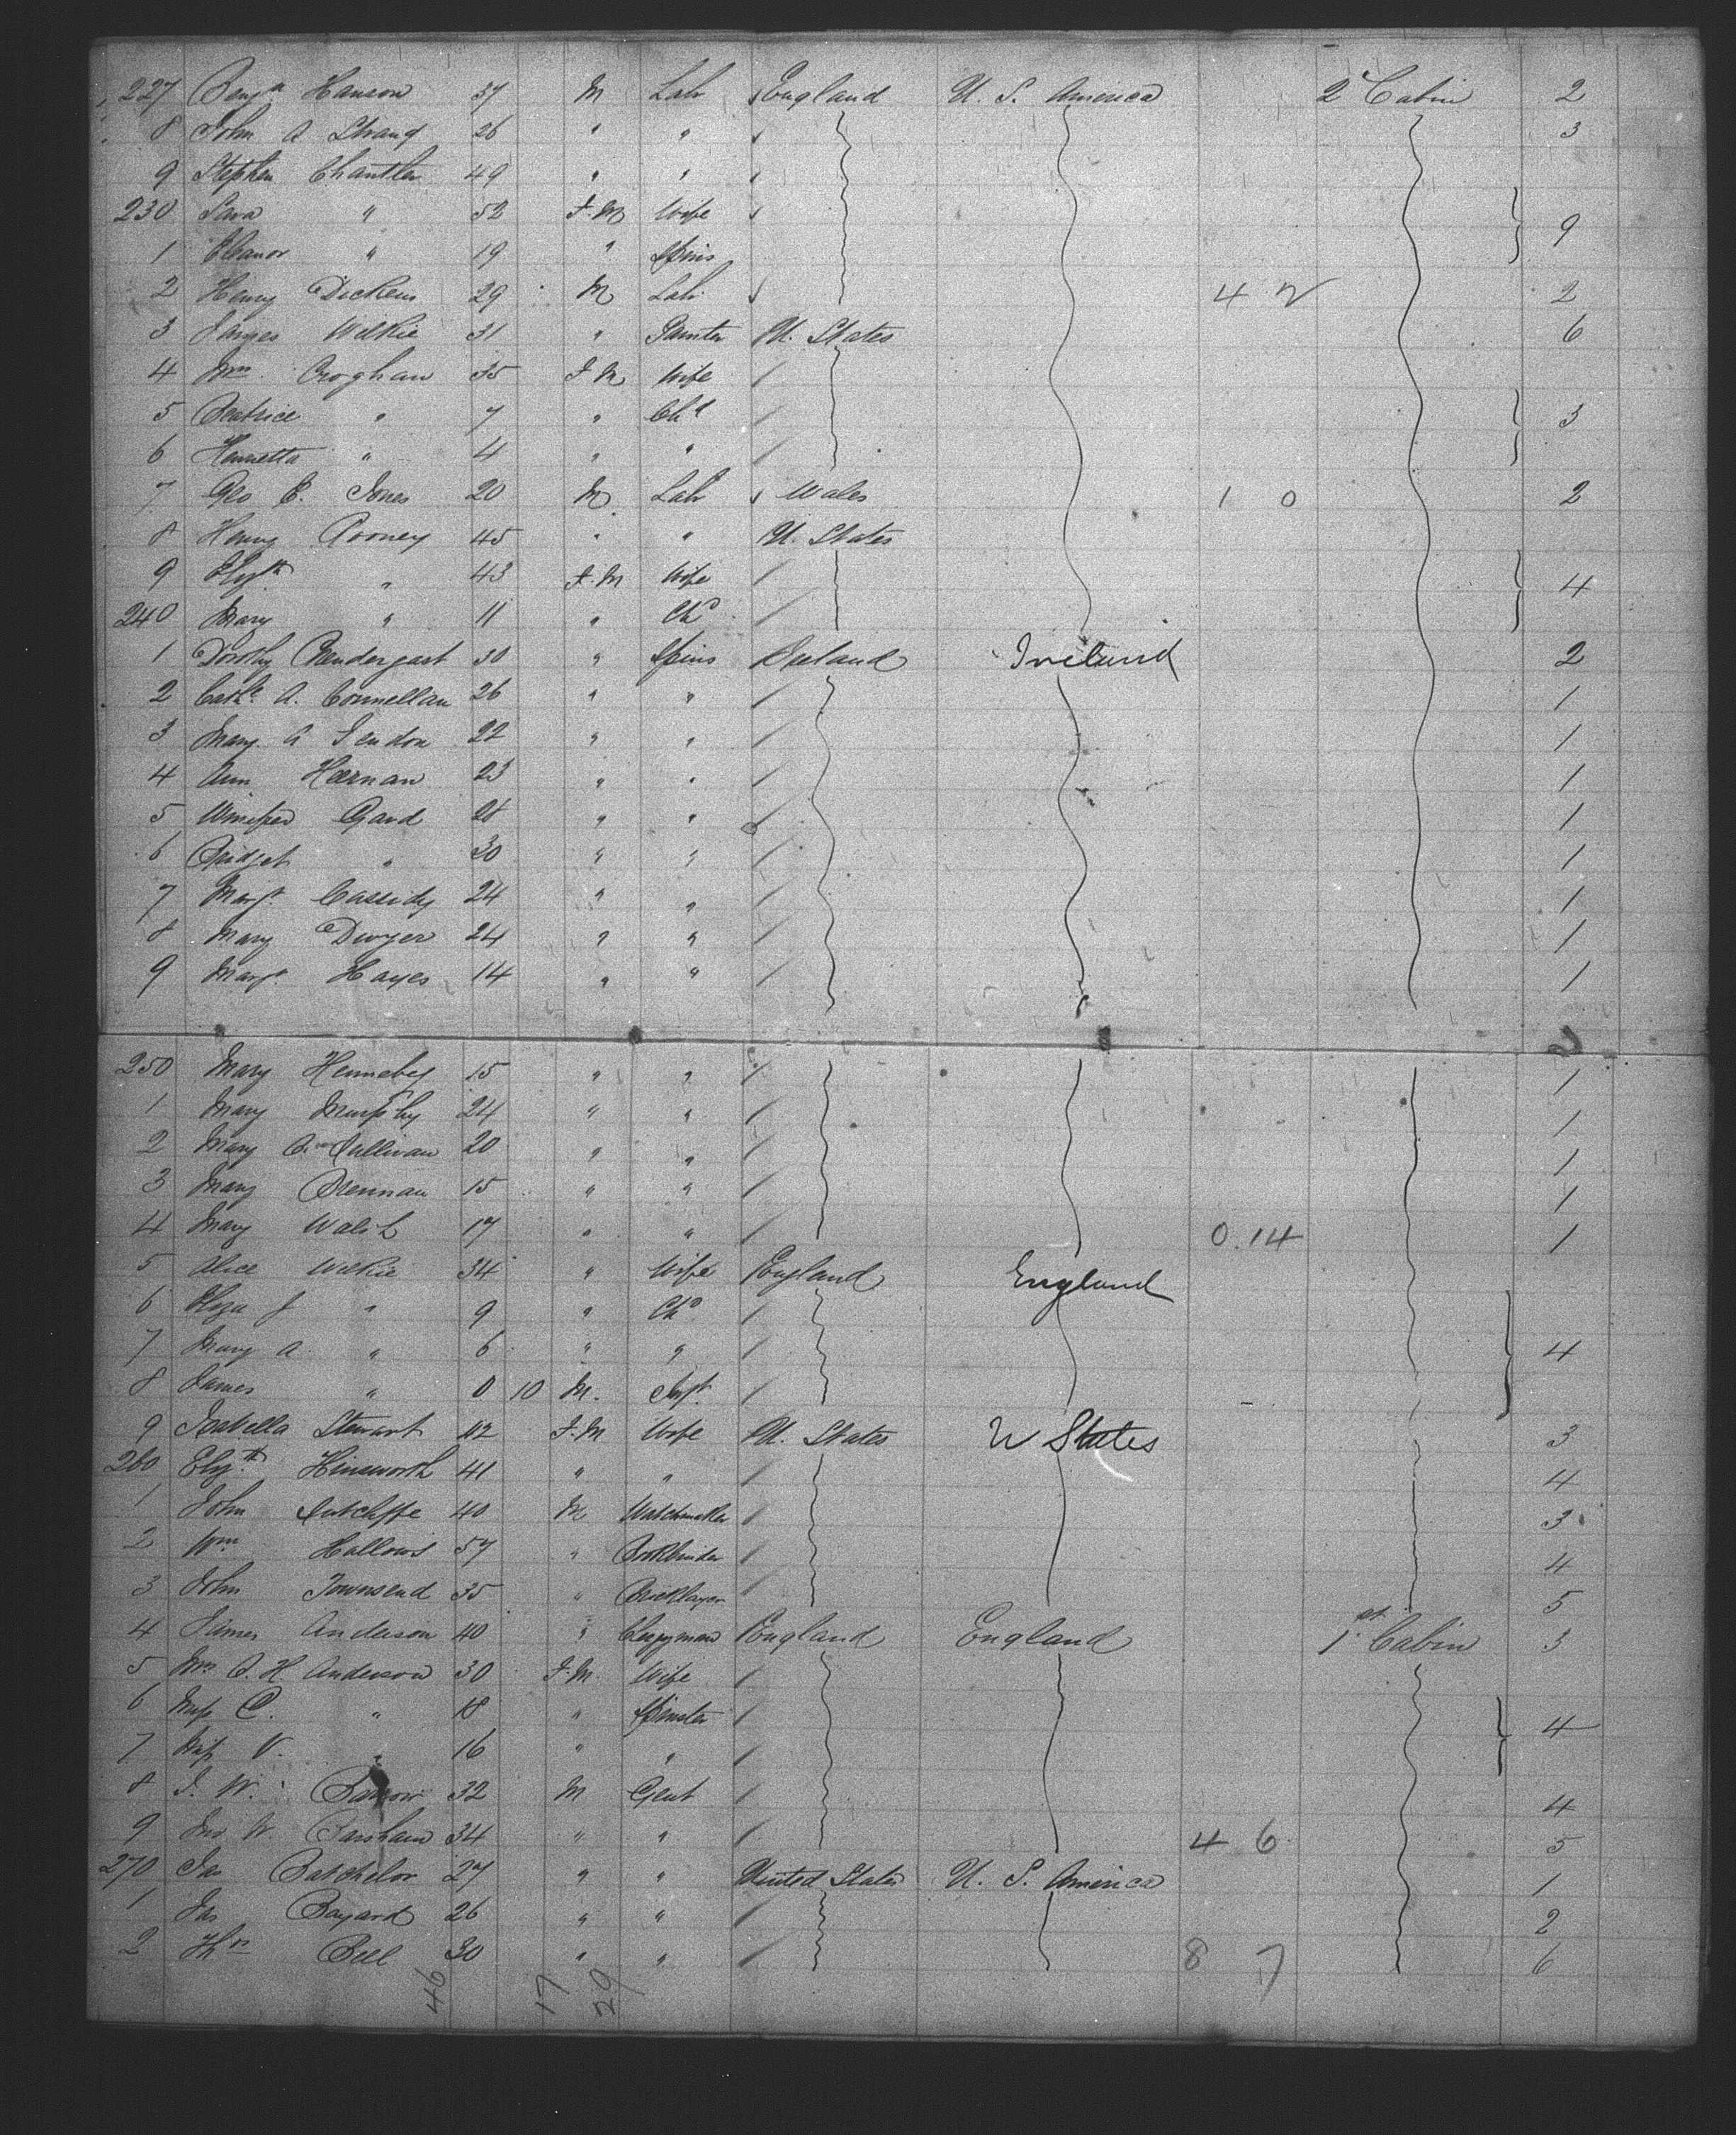 227 Benjn Hanson 37 M Labr England U. S. America 2d Cabin 2
8 John A Strang 26 " " 3
9 Stephen Chantler 49 " "
230 Sara " 52 F. M Wife 9
1 Eleanor " 19 " Spins
2 Henry Dickens 29 M Labr 4 2 2
3 James Wilkie 31 " Painter U. States 6
4 Mrs Croghan 35 F M Wife
5 Beatrice " 7 " Chd 3
6 Henrietta " 4 " "
7 Geo E. Jones 20 M Labr Wales 1 0 2
8 Henry Rooney 45 " " U. States
9 Elizth " 43 F. M Wife 4
240 Mary " 11 " Chd
1 Dorothy Prendergast 30 " Spins Ireland Ireland 2
2 Cathe A. Connellan 26 " " 1
3 Mary A 22 " " 1
4 Ann Heernan 23 " " 1
5 Winifred Gard 28 " " 1
6 Bridget " 30 " " 1
7 Margt Cassidy 24 " " 1
8 Mary Dwyer 24 " " 1
9 Margt Hayes 14 " " 1
250 Mary Hennebey 15 " " 1
1 Mary Murphy 24 " " 1
2 Mary O'Sullivan 20 " " 1
3 Mary Brennan 15 " " 1
4 Mary Walsh 17 " " 0. 14 1
5 Alice Wilkie 34 " Wife England England
6 Eliza J " 9 " Chd
7 Mary A " 6 " " 4
8 James " 0 10 M. Inft
9 Isabella Stewart 42 F. M Wife U. States U States 3
260 Elizth Hinsworth 41 " " 4
1 John Sutcliffe 40 M Watchmaker 3
2 Wm Hallows 57 " Bookbinder 4
3 John Townsend 35 " Bricklayer 5
4 James Anderson 40 " Clergyman England England 1st Cabin 3
5 Mrs A. H. Anderson 30 F. M. Wife
6 Miss C. " 18 " Spinster 4
7 Miss V. " 16 " "
8 J. W. Barrow 32 M Gent 4
9 Jno W. Barsham 34 " " 4 6 5
270 Jas Batchelor 27 " " United States U. S. America 1
1 Jas Bayard 26 " " 2
2 Thos Bell 30 " " 8 7 6
46 17 29